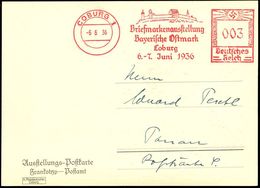 COBURG 1
-6.6.36
Briefmarkenausstellung
Bayerische Ostmark
Coburg
6.-7. Juni 1936
003
Deutsches
Reich
Herrn
Eduard Peschl
Passau
Ausstellungs-Postkarte
Frankotyp - Postamt